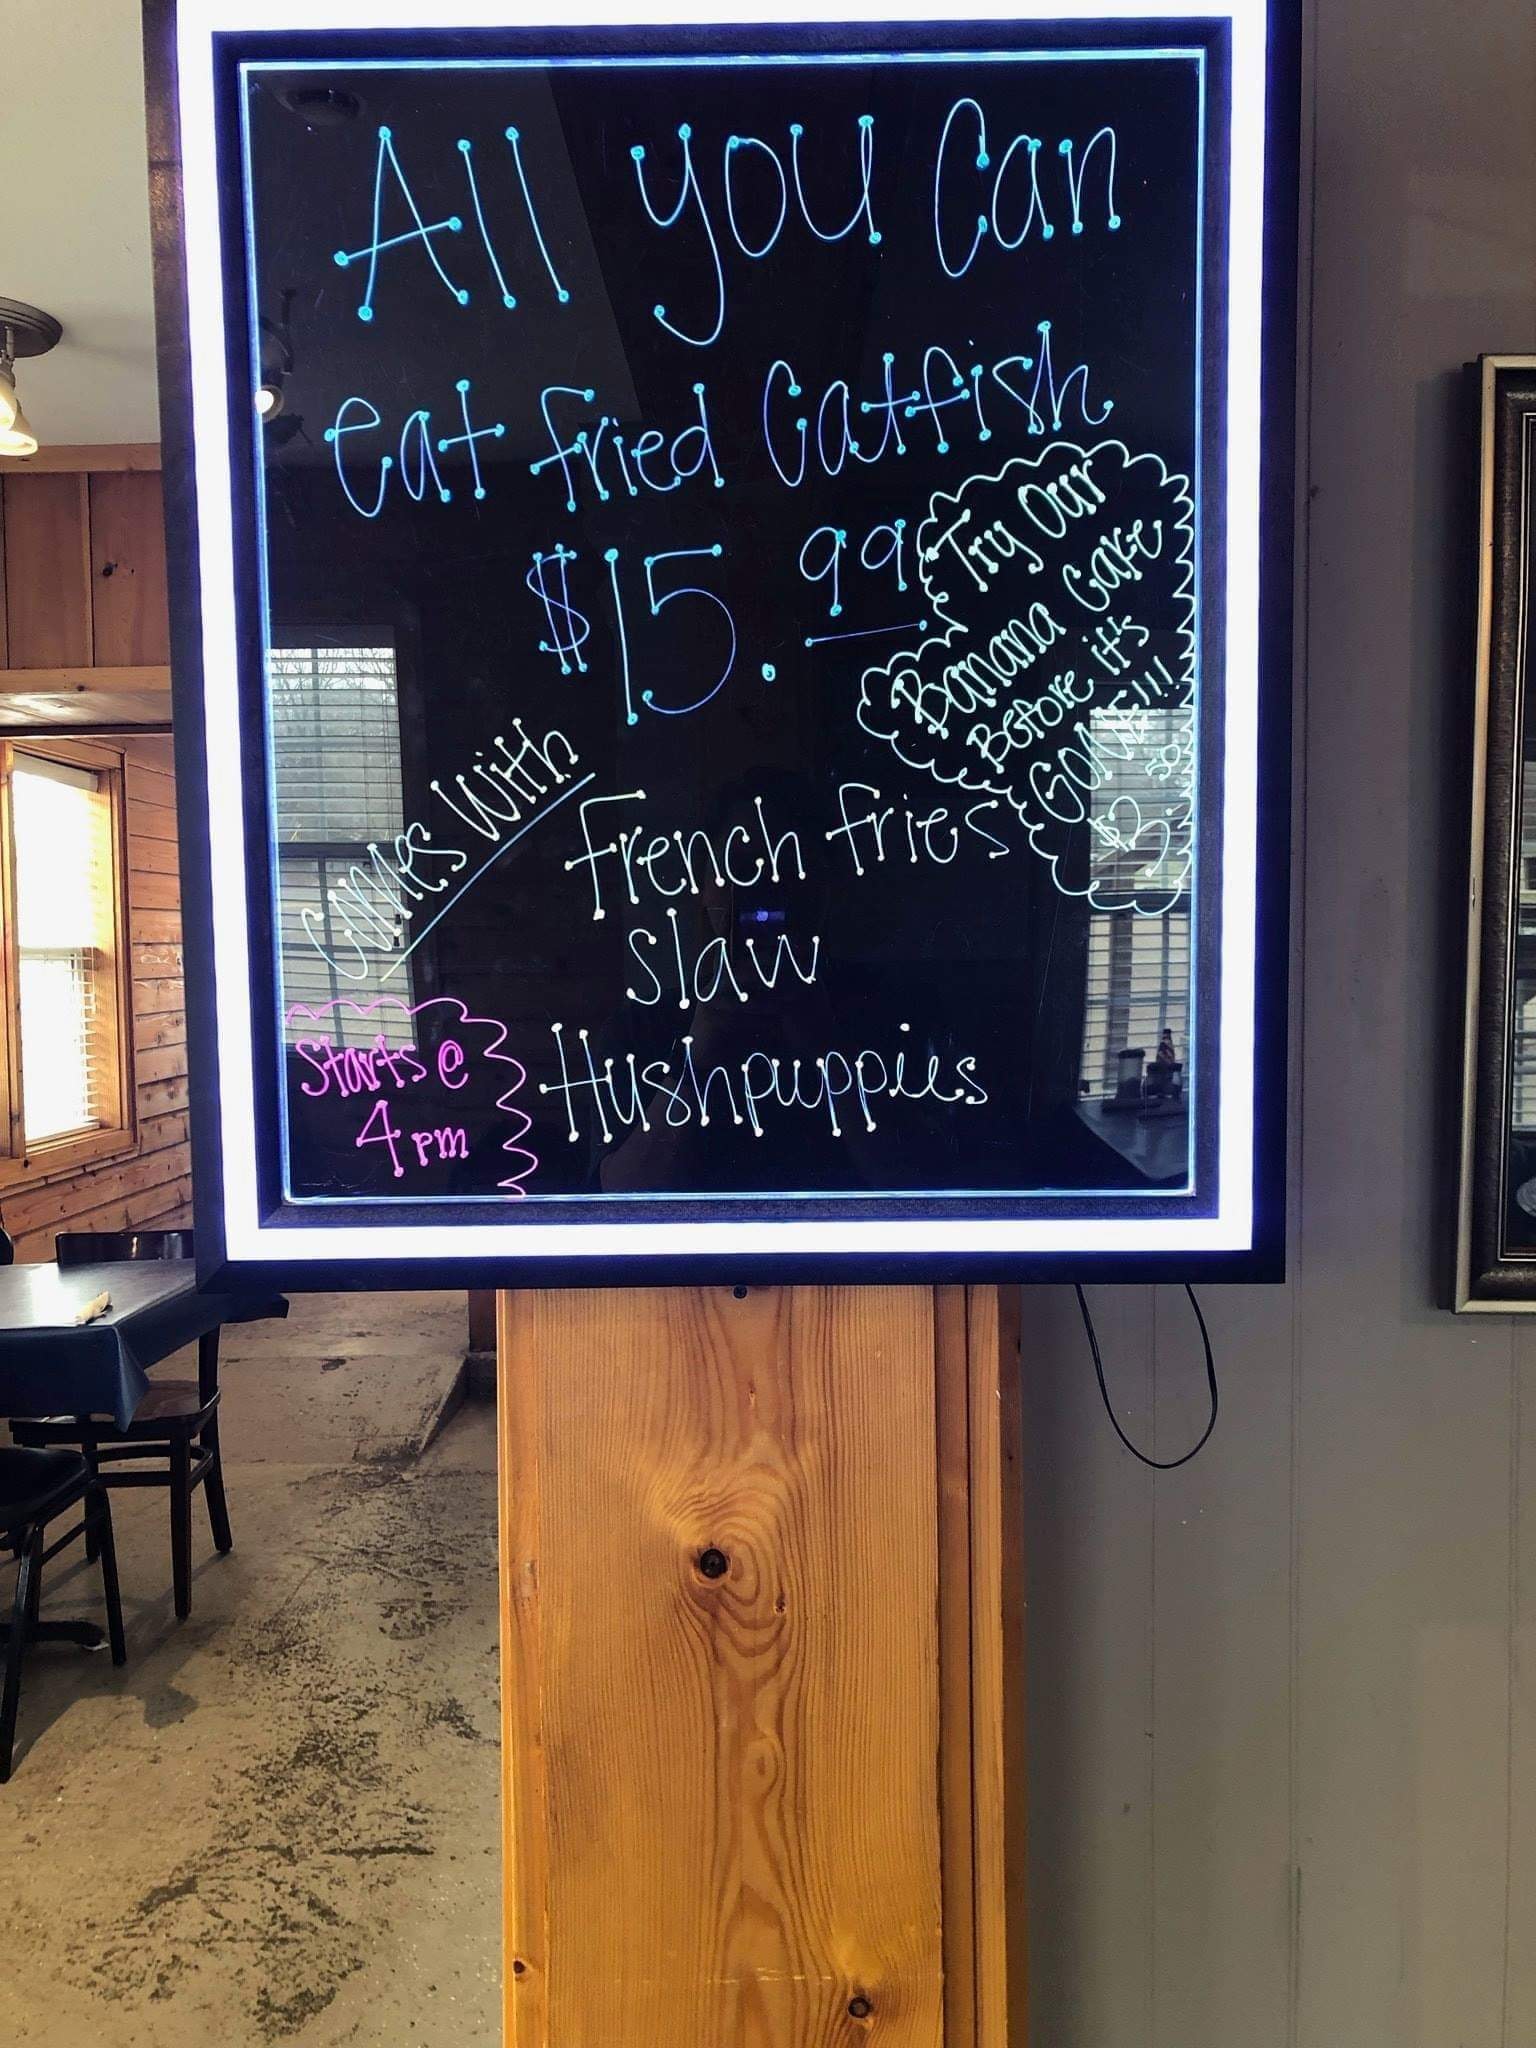 All you Can
eat fried Catfish
$15.99
Try Our
Banana Cake
Before it's
GONE!!!
$3.50
Comes With
French fries
Slaw
Hushpuppies
Starts @
4pm